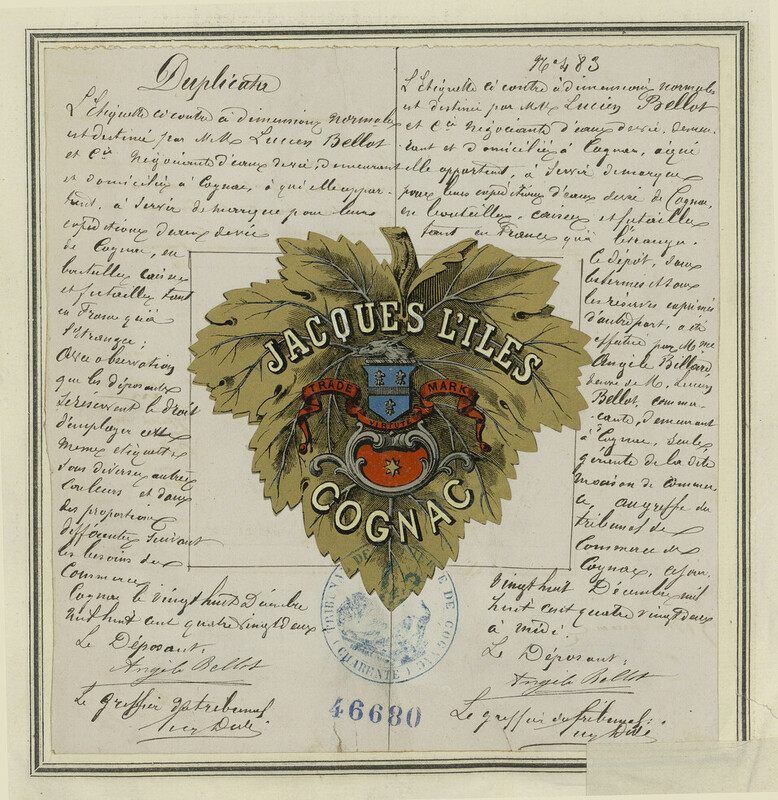 Duplicata
L'Etiquette ci contre à dimensions normales
est destiné par MM Lucien Bellot
et Cie Négociants d'eaux devie, demeurant
et domiciliés à Cognac, à qui elle appar-
tient, à servir de marque pour leurs
expéditions d'eaux devie
de Cognac, en
bouteilles caisses
et futailles tant
en France qu'à
l'étranger;
Avec observation
que les déposants
se réservent le droit
d'employer cette
même étiquette
sous diverses autres
couleurs et dans
des proportions
différentes suivant
les besoins du
Commerce
Cognac le vingt huit Décembre
mil huit cent quatre vingt deux
Le Déposant;
Angèle Bellot
Le greffier du tribunal
No 483
L'Etiquette ci contre à dimensions normales
est destiné par MM. Lucien Bellot
et Cie Négociants d'eaux devie, demeu-
rant et domiciliés à Cognac, à qui
elle appartient, à servir de marque
pour leurs expéditions d'eaux devie de Cognac,
en bouteilles, caisses et futailles
tant en France qu'à l'étranger.
le dépôt, sous
les termes et sous
les réserves exprimées
d'autre part, a été
effectué par Mme
Angèle Billard,
veuve de M. Lucien
Bellot, commer-
çante, demeurant
à Cognac, seule
gérante de la dite
maison de commer-
ce, au greffe du
tribunal de
Commerce de
Cognac, ce jour,
vingt huit Décembre mil
huit cent quatre vingt deux
à midi.
Le Déposant;
Angèle Bellot
Le greffier du tribunal;
JACQUES L'ILES
TRADE MARK
VIRTUTE
COGNAC
TRIBUNAL DE COMMERCE DE COGNAC
CHARENTE
46680